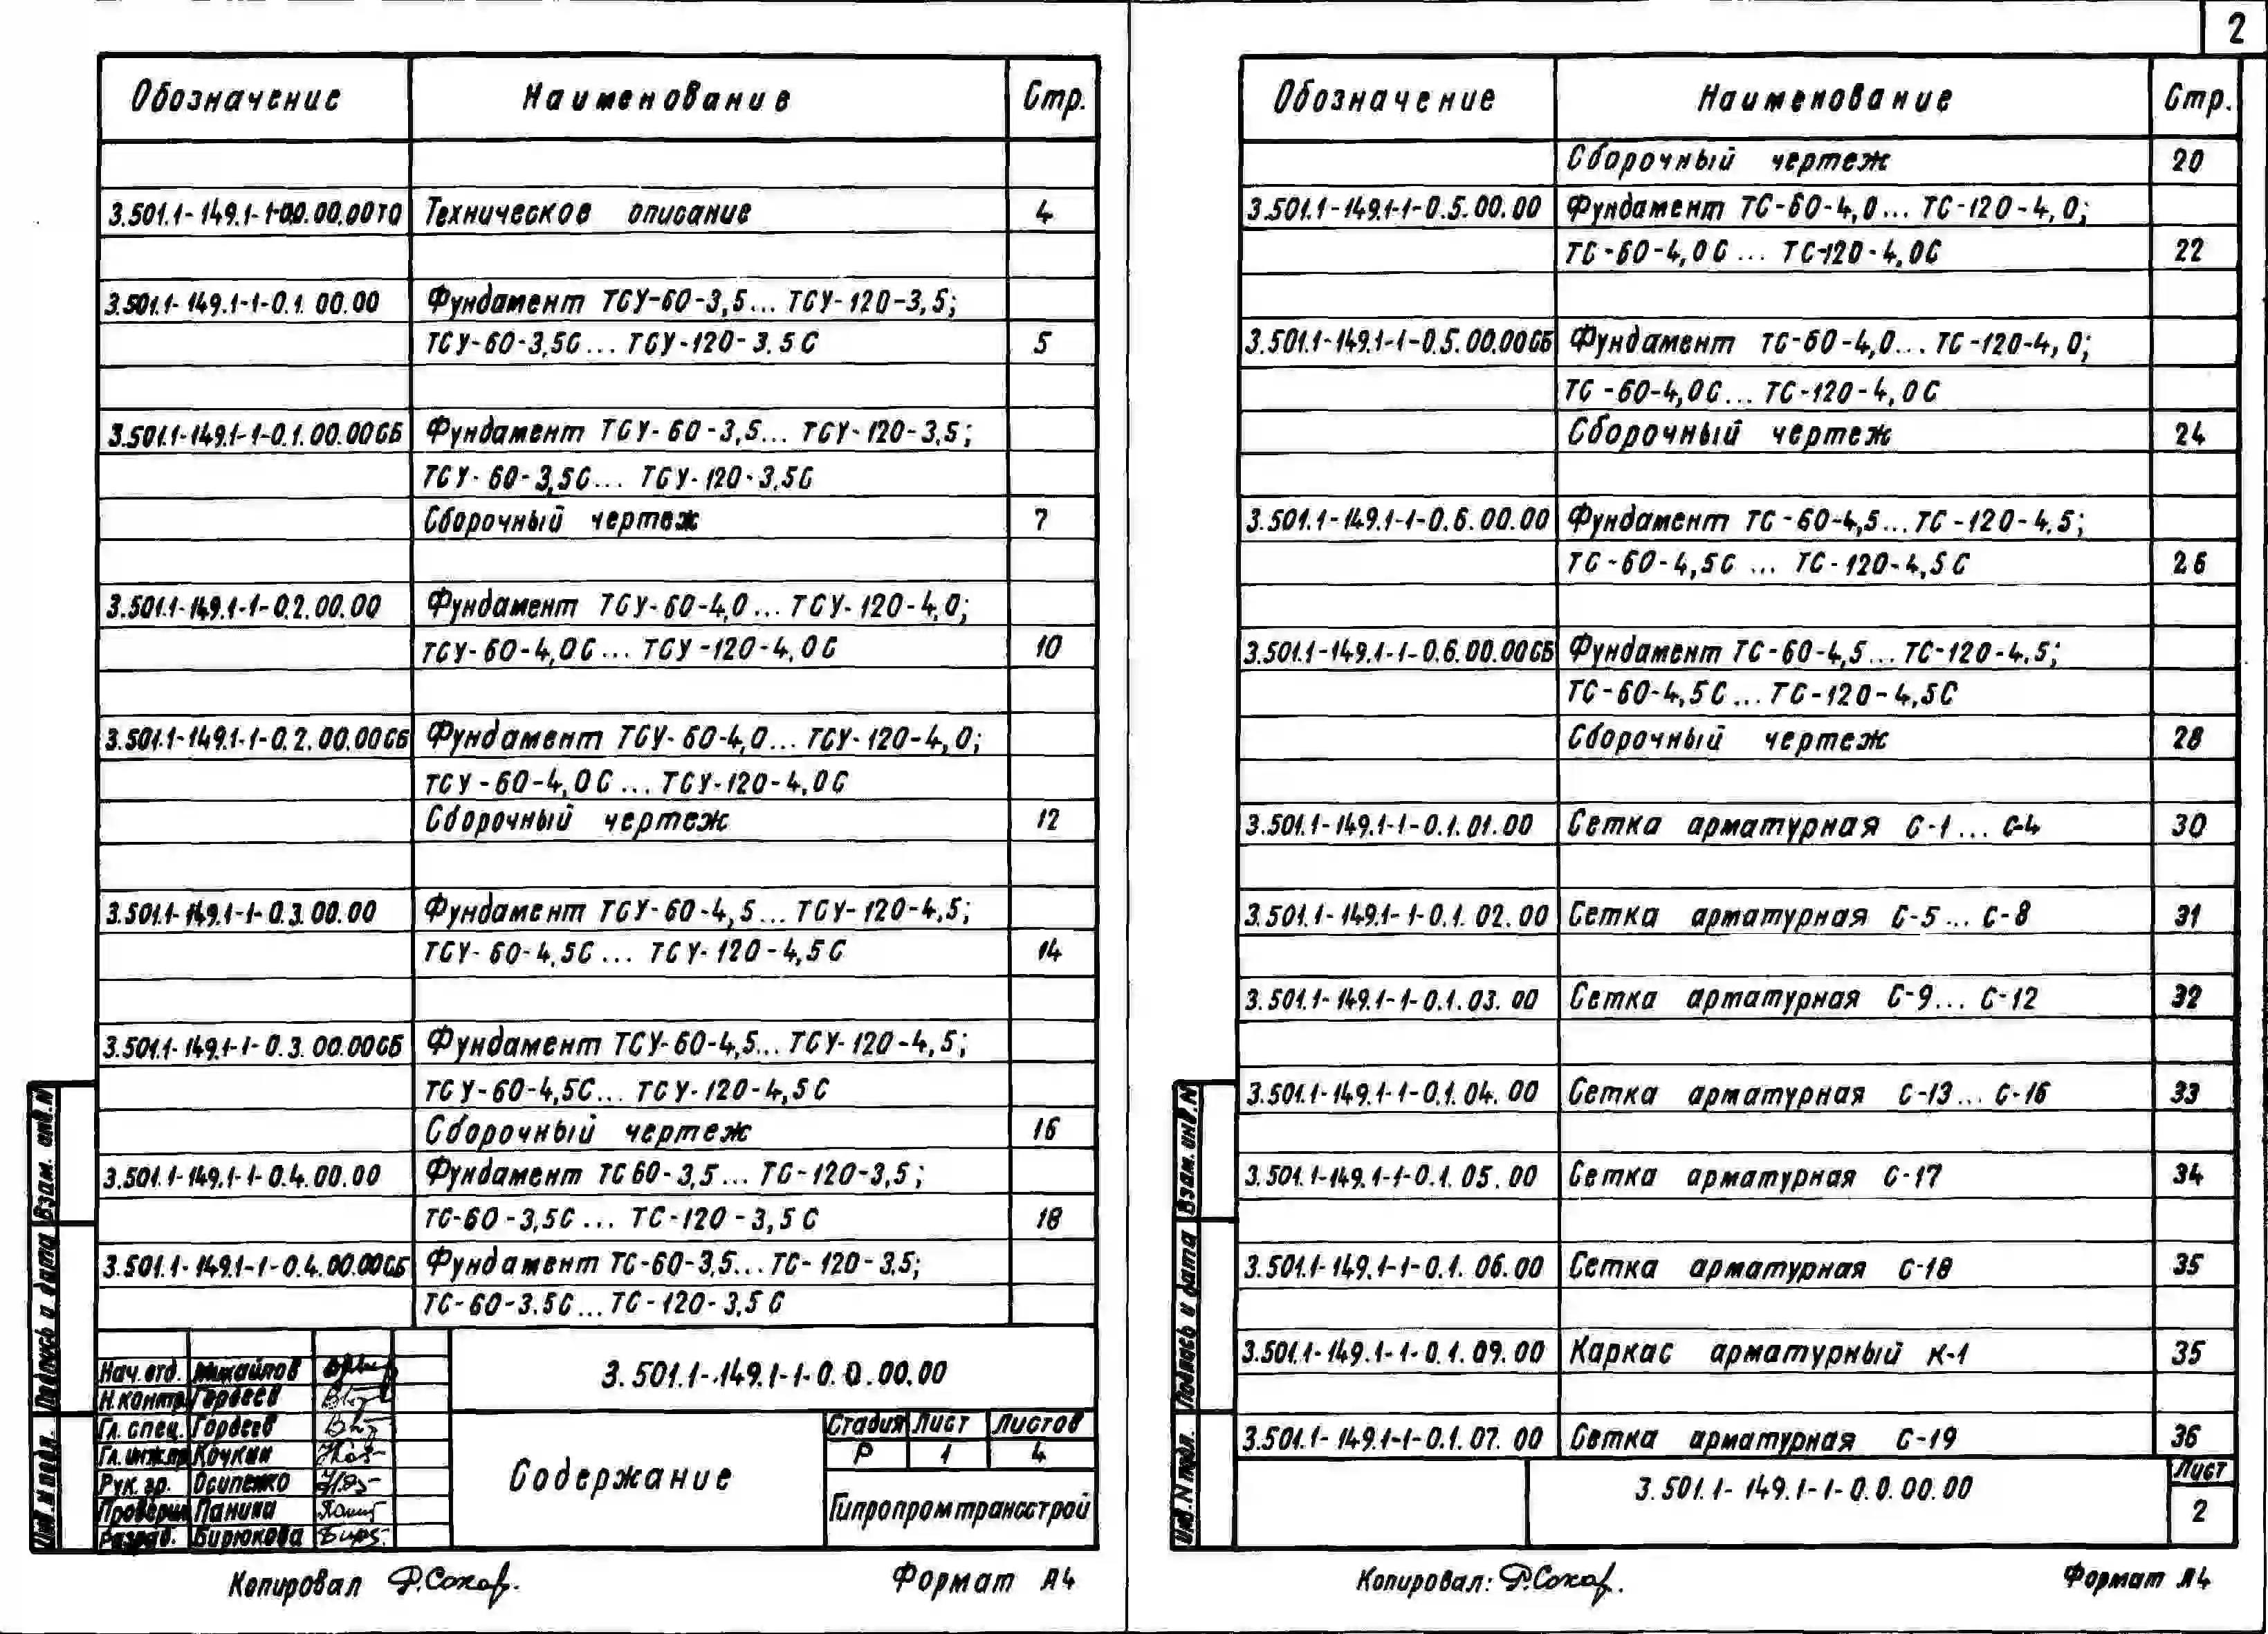 2
Обозначение Наименование Стр.
3.501.1-149.1-1-0.0.00.00ТО Техническое описание 4
3.501.1-149.1-1-0.1.00.00 Фундамент ТСУ-60-3,5... ТСУ-120-3,5;
ТСУ-60-3,5С... ТСУ-120-3.5С 5
3.501.1-149.1-1-0.1.00.00СБ Фундамент ТСУ-60-3,5... ТСУ-120-3,5;
ТСУ-60-3,5С... ТСУ-120-3,5С
Сборочный чертеж 7
3.501.1-149.1-1-0.2.00.00 Фундамент ТСУ-60-4,0... ТСУ-120-4,0;
ТСУ-60-4,0С... ТСУ-120-4,0С 10
3.501.1-149.1-1-0.2.00.00СБ Фундамент ТСУ-60-4,0... ТСУ-120-4,0;
ТСУ-60-4,0С... ТСУ-120-4,0С
Сборочный чертеж 12
3.501.1-149.1-1-0.3.00.00 Фундамент ТСУ-60-4,5... ТСУ-120-4,5;
ТСУ-60-4,5С... ТСУ-120-4,5С 14
3.501.1-149.1-1-0.3.00.00СБ Фундамент ТСУ-60-4,5... ТСУ-120-4,5;
ТСУ-60-4,5С... ТСУ-120-4,5С
Сборочный чертеж 16
3.501.1-149.1-1-0.4.00.00 Фундамент ТС60-3,5... ТС-120-3,5;
ТС-60-3,5С... ТС-120-3,5С 18
3.501.1-149.1-1-0.4.00.00СБ Фундамент ТС-60-3,5... ТС-120-3,5;
ТС-60-3.5С... ТС-120-3,5С
Взам. инв.N
Подпись и дата
Инв.N подл.
Нач.отд. Михайлов
Н.контр. Гордеев
Гл.спец. Гордеев
Гл.инж.пр. Кочкин
Рук.гр. Осипенко
Проверил Панина
Разраб. Бирюкова
3.501.1-149.1-1-0.0.00.00
Содержание
Стадия Лист Листов
Р 1 4
Гипропромтрансстрой
Копировал Р.Сокоf. Формат А4
Обозначение Наименование Стр.
Сборочный чертеж 20
3.501.1-149.1-1-0.5.00.00 Фундамент ТС-60-4,0... ТС-120-4,0;
ТС-60-4,0С... ТС-120-4,0С 22
3.501.1-149.1-1-0.5.00.00СБ Фундамент ТС-60-4,0... ТС-120-4,0;
ТС-60-4,0С... ТС-120-4,0С
Сборочный чертеж 24
3.501.1-149.1-1-0.6.00.00 Фундамент ТС-60-4,5... ТС-120-4,5;
ТС-60-4,5С... ТС-120-4,5С 26
3.501.1-149.1-1-0.6.00.00СБ Фундамент ТС-60-4,5... ТС-120-4,5;
ТС-60-4,5С... ТС-120-4,5С
Сборочный чертеж 28
3.501.1-149.1-1-0.1.01.00 Сетка арматурная С-1... С-4 30
3.501.1-149.1-1-0.1.02.00 Сетка арматурная С-5... С-8 31
3.501.1-149.1-1-0.1.03.00 Сетка артатурная С-9... С-12 32
3.501.1-149.1-1-0.1.04.00 Сетка арматурная С-13... С-16 33
3.501.1-149.1-1-0.1.05.00 Сетка арматурная С-17 34
3.501.1-149.1-1-0.1.06.00 Сетка арматурная С-18 35
3.501.1-149.1-1-0.1.09.00 Каркас арматурный К-1 35
3.501.1-149.1-1-0.1.07.00 Сетка арматурная С-19 36
Взам. инв.N
Подпись и дата
Инв.N подл.
3.501.1-149.1-1-0.0.00.00
Лист
2
Копировал: Формат А4